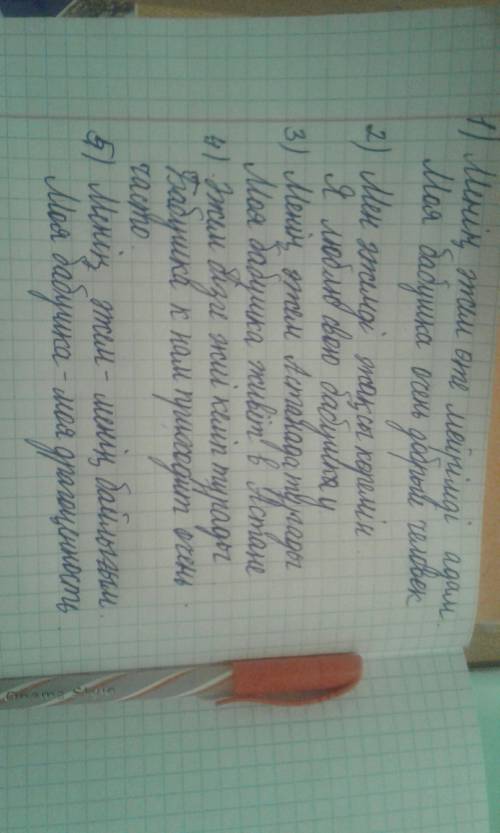 1) Менің әжем өте мейірімді адам.
Моя бабушка очень добрый человек
2) Мен әжемді жақсы көремін
Я люблю свою бабушку
3) Менің әжем Астанада тұрады
Моя бабушка живёт в Астане
4) Әжем бізге жиі келіп тұрады
Бабушка к нам приходит очень
часто
5) Менің әжем - менің байлығым.
Моя бабушка - моя драгоценность.